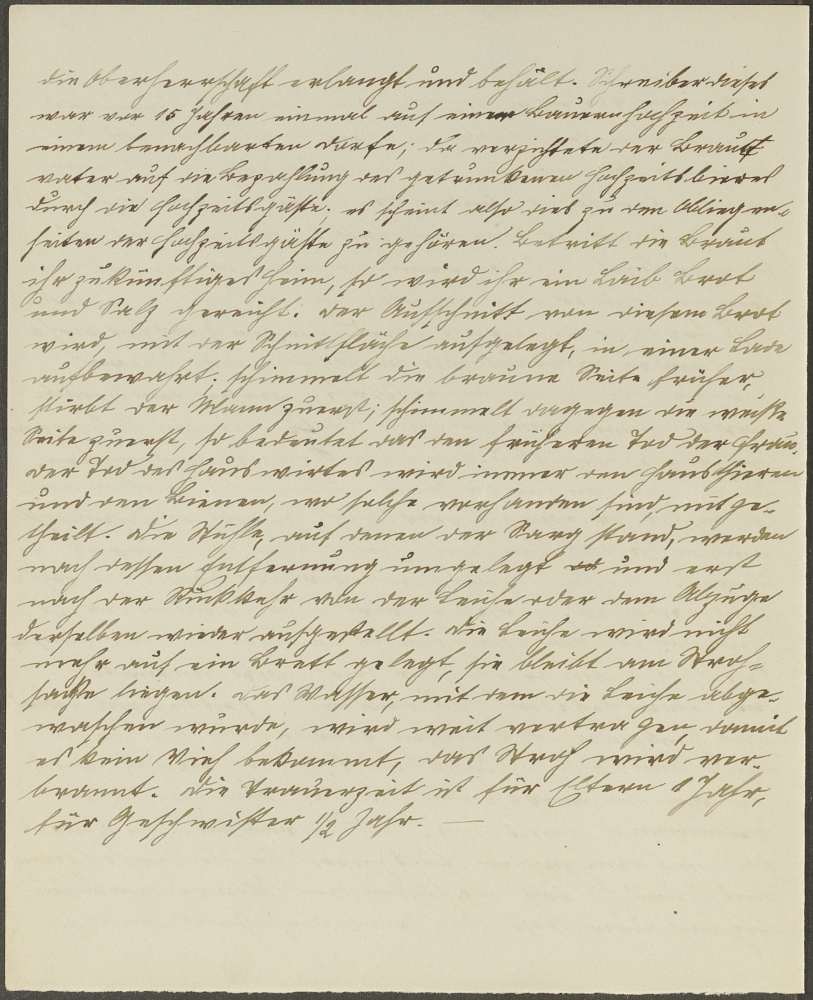 die Oberherrschaft erlangt und behält. Schreiber dieses
war vor 15 Jahren einmal auf einer Bauernhochzeit in
einem benachbarten Dorfe; da verzichtete der Braut
vater auf die Bezahlung des getrunkenen Hochzeitsbieres
durch die Hochzeitsgäste. es scheint also dies zu den Obliegen-
heiten der Hochzeitsgäste zu gehören. Betritt die Braut
ihr zukünftiges Heim, so wird ihr ein Laib Brot
und Salz gereicht. Der Aufschnitt von diesem Brot
wird, mit der Schnittfläche aufgelegt, in einer Lade
aufbewahrt; schimmelt die braune Seite früher,
stirbt der Mann zuerst; schimmelt dagegen die weiße
Seite zuerst, so bedeutet das den früheren Tod der Frau.
Der Tod des Hauswirtes wird immer den Hausthieren
und den Bienen, wo solche vorhanden sind, mitge-
theilt. Die Stühle, auf denen der Sarg stand, werden
nach dessen Entfernung umgelegt und erst
nach der Rückkehr von der Leiche oder dem Abzuge
derselben wieder aufgestellt. Die Leiche wird nicht
mehr auf ein Brett gelegt, sie bleibt am Stroh-
sacke liegen. Das Wasser, mit dem die Leiche abge-
waschen wurde, wird weit vertragen, damit
es kein Vieh bekommt, das Stroh wird ver-
brannt. Die Trauerzeit ist für Eltern 1 Jahr,
für Geschwister 1/2 Jahr. —